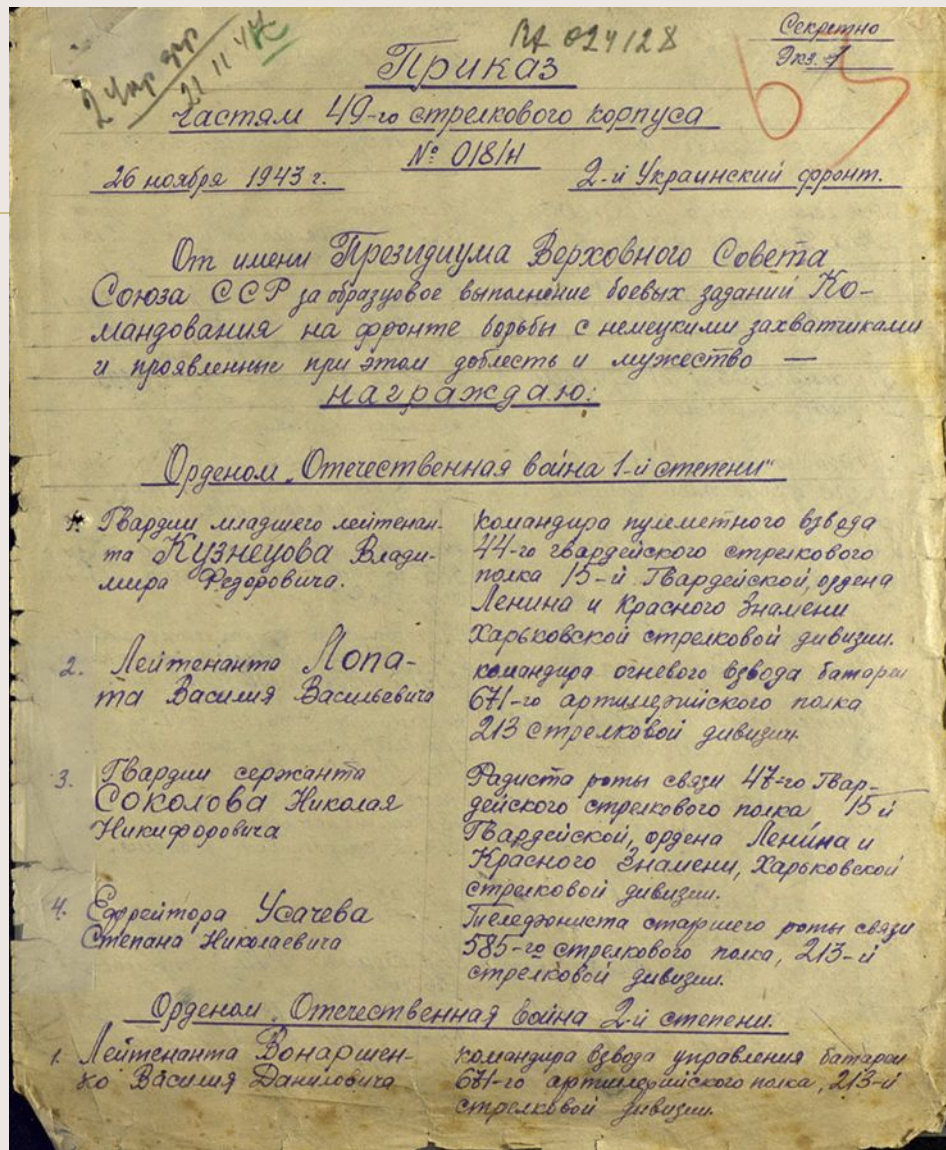 Секретно
Экз. 1
ВХ 024128
21 11 47
65
Приказ
частям 49-го стрелкового корпуса
№ 018/н
26 ноября 1943 г.
2-й Украинский фронт.
От имени Президиума Верховного Совета
Союза ССР за образцовое выполнение боевых заданий Ко-
мандования на фронте борьбы с немецкими захватчиками
и проявленные при этом доблесть и мужество —
награждаю:
Орденом „Отечественная война 1-й степени"
1. Гвардии младшего лейтенан-
та Кузнецова Влади-
мира Федоровича.
командира пулеметного взвода
44-го гвардейского стрелкового
полка 15-й Гвардейской, ордена
Ленина и Красного Знамени
Харьковской стрелковой дивизии.
2. Лейтенанта Лопа-
та Василия Васильевича
командира огневого взвода батареи
671-го артиллерийского полка
213 стрелковой дивизии.
3. Гвардии сержанта
Соколова Николая
Никифоровича
Радиста роты связи 47-го Гвар-
дейского стрелкового полка 15-й
Гвардейской, ордена Ленина и
Красного Знамени, Харьковской
стрелковой дивизии.
4. Ефрейтора Усачева
Степана Николаевича
Телефониста старшего роты связи
585-го стрелкового полка, 213-й
стрелковой дивизии.
Орденом „Отечественная война 2-й степени.
1. Лейтенанта Вонаршен-
ко Василия Даниловича
командира взвода управления батареи
671-го артиллерийского полка, 213-й
стрелковой дивизии.